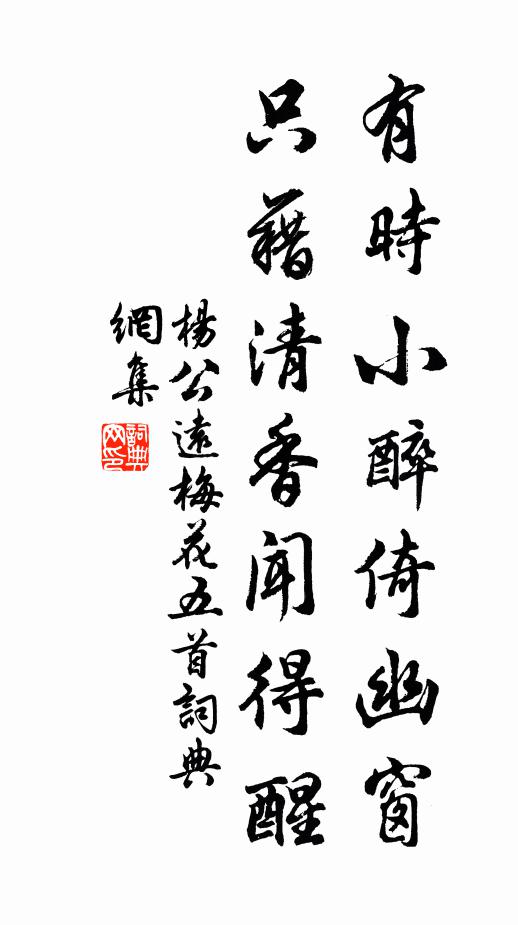 有時小醉倚幽窗
只藉清香聞得醒
楊公遠梅花五首詞典
網集
詞典網印